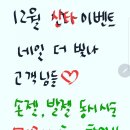 12월, 산타 이벤트
네일 더 빛나
고객님들♡
손젤, 발젤 동시시술